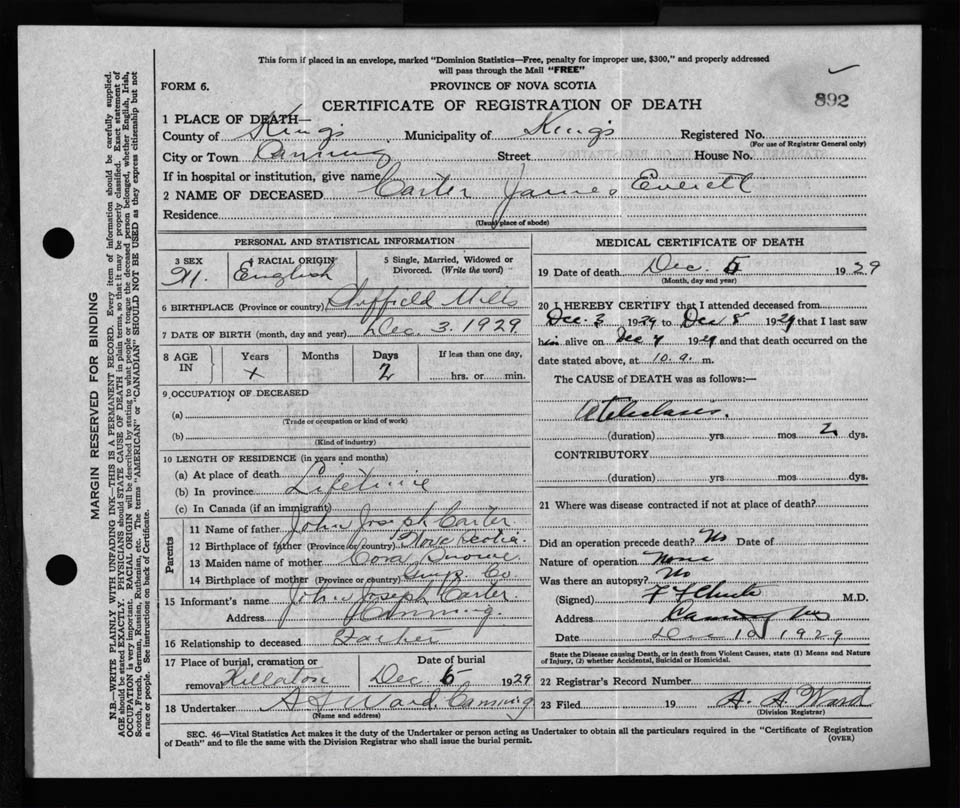 This form if placed in an envelope, marked "Dominion Statistics—Free, penalty for improper use, $300," and properly addressed
will pass through the Mail "FREE"
FORM 6.
PROVINCE OF NOVA SCOTIA
892
CERTIFICATE OF REGISTRATION OF DEATH
1 PLACE OF DEATH—
County of Kings Municipality of Kings Registered No.
(For use of Registrar General only)
City or Town Canning Street House No.
If in hospital or institution, give name
2 NAME OF DECEASED Carter James Everett
Residence
(Usual place of abode)
PERSONAL AND STATISTICAL INFORMATION
3 SEX 4 RACIAL ORIGIN 5 Single, Married, Widowed or
Divorced. (Write the word)
M. English
6 BIRTHPLACE (Province or country) Sheffield Mills
7 DATE OF BIRTH (month, day and year) Dec. 3. 1929
8 AGE IN Years Months Days If less than one day,
x 2 hrs. or min.
9 OCCUPATION OF DECEASED
(a)
(Trade or occupation or kind of work)
(b)
(Kind of industry)
10 LENGTH OF RESIDENCE (in years and months)
(a) At place of death
(b) In province Lifetime
(c) In Canada (if an immigrant)
Parents
11 Name of father John Joseph Carter
12 Birthplace of father (Province or country) Nova Scotia.
13 Maiden name of mother
14 Birthplace of mother (Province or country) Co.
15 Informant's name John Joseph Carter
Address Canning.
16 Relationship to deceased Father
17 Place of burial, cremation or Date of burial
removal Dec 5 1929
18 Undertaker Ward. Canning
(Name and address)
MEDICAL CERTIFICATE OF DEATH
19 Date of death Dec. 5 1929
(Month, day and year)
20 I HEREBY CERTIFY that I attended deceased from
Dec. 3 1929 to Dec 1929 that I last saw
him alive on Dec 1929 and that death occurred on the
date stated above, at 10 a. m.
The CAUSE of DEATH was as follows:—
Atelectasis.
(duration) yrs. mos. 2 dys.
CONTRIBUTORY
(duration) yrs. mos. dys.
21 Where was disease contracted if not at place of death?
Did an operation precede death? No Date of
Nature of operation None
Was there an autopsy? No
(Signed) M.D.
Address Canning NS
Date Dec 10 1929
State the Disease causing Death, or in death from Violent Causes, state (1) Means and Nature
of Injury, (2) whether Accidental, Suicidal or Homicidal.
22 Registrar's Record Number
23 Filed 19 A. A. Ward
(Division Registrar)
SEC. 46—Vital Statistics Act makes it the duty of the Undertaker or person acting as Undertaker to obtain all the particulars required in the "Certificate of Registration
of Death" and to file the same with the Division Registrar who shall issue the burial permit.
(OVER)
MARGIN RESERVED FOR BINDING
N.B.—WRITE PLAINLY WITH UNFADING INK—THIS IS A PERMANENT RECORD. Every item of information should be carefully supplied.
AGE should be stated EXACTLY. PHYSICIANS should STATE CAUSE OF DEATH in plain terms, so that it may be properly classified. Exact statement of
OCCUPATION is very important. RACIAL ORIGIN will be described by stating to what people or tongue the deceased person belonged, whether English, Irish,
Scotch, French, German, Russian, Ruthenian, etc. The terms "AMERICAN" or "CANADIAN" SHOULD NOT BE USED as they express citizenship but not
a race or people. See instructions on back of Certificate.